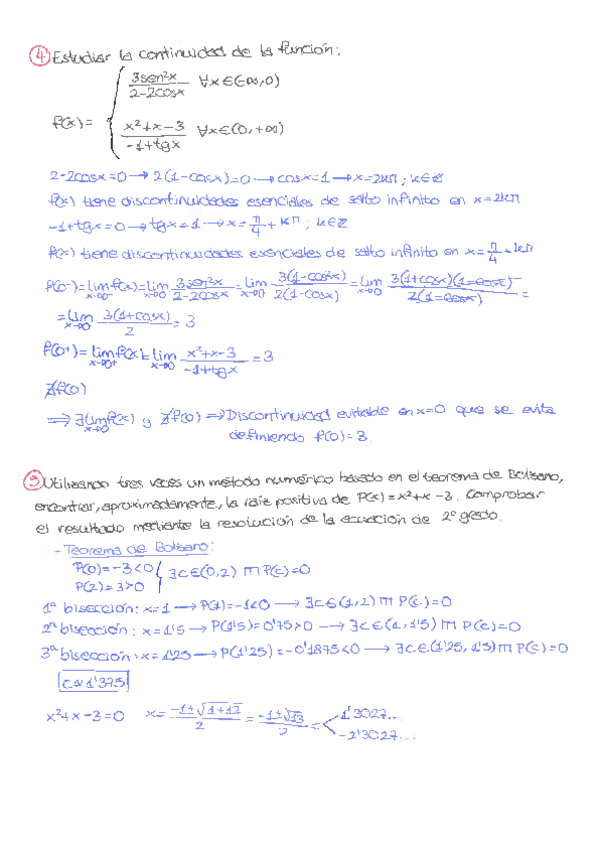 ④ Estudiar la continuidad de la función:
f(x) = { 3sen²x / 2-2cosx ∀x∈(-∞,0)
x²+x-3 / -1+tgx ∀x∈(0,+∞)
2-2cosx=0 → 2(1-cosx)=0 → cosx=1 → x=2kπ; k∈ℤ
f(x) tiene discontinuidades esenciales de salto infinito en x=2kπ
-1+tgx=0 → tgx=1 → x=π/4+kπ; k∈ℤ
f(x) tiene discontinuidades esenciales de salto infinito en x=π/4+kπ
f(0⁻)=lim x→0⁻ f(x)=lim x→0 3sen²x / 2-2cosx = lim x→0 3(1-cos²x) / 2(1-cosx) = lim x→0 3(1+cosx)(1-cosx) / 2(1-cosx) =
=lim x→0 3(1+cosx) / 2 = 3
f(0⁺)=lim x→0⁺ f(x)=lim x→0 x²+x-3 / -1+tgx = 3
∄f(0)
⟹ ∃lim x→0 f(x) y ∄f(0) ⟹ Discontinuidad evitable en x=0 que se evita
definiendo f(0)=3.
⑤ Utilizando tres veces un método numérico basado en el teorema de Bolzano,
encontrar, aproximadamente, la raíz positiva de P(x)=x²+x-3. Comprobar
el resultado mediante la resolución de la ecuación de 2º grado.
- Teorema de Bolzano:
P(0)=-3<0
P(2)=3>0 } ∃c∈(0,2) P(c)=0
1ª bisección: x=1 → P(1)=-1<0 → ∃c∈(1,2) P(c)=0
2ª bisección: x=1'5 → P(1'5)=0'75>0 → ∃c∈(1,1'5) P(c)=0
3ª bisección: x=1'25 → P(1'25)=-0'1875<0 → ∃c∈(1'25,1'5) P(c)=0
c≈1'375
x²+x-3=0 x= -1±√1+12 / 2 = -1±√13 / 2 = 1'3027...
-2'3027...